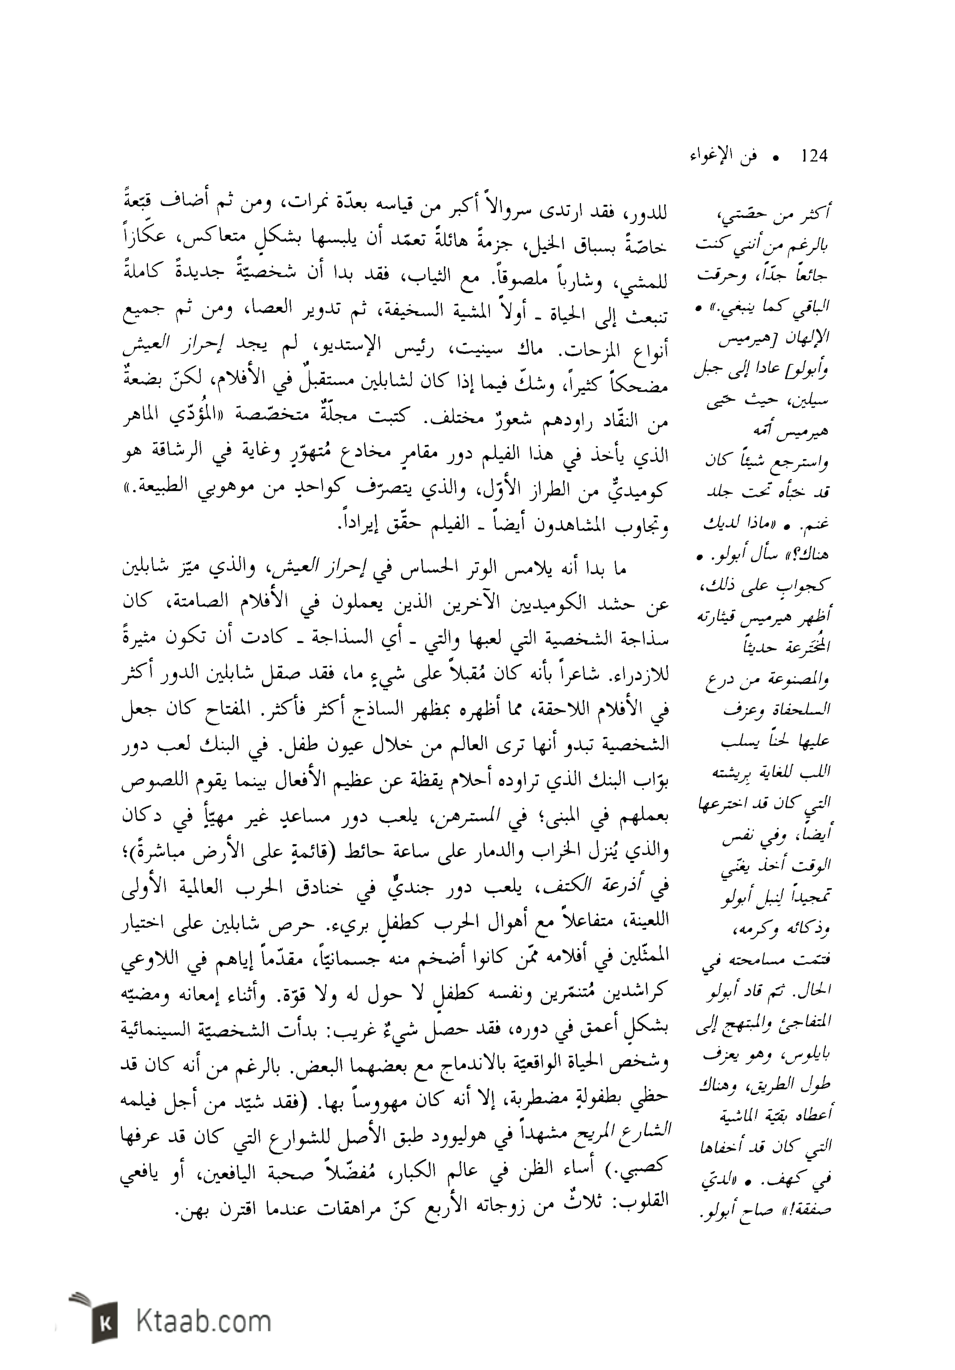 124 • فن الإغواء
للدور، فقد ارتدى سروالاً أكبر من قياسه بعدّة نمرات، ومن ثم أضاف قبّعةً
خاصّةً بسباق الخيل، جزمةً هائلةً تعمّد أن يلبسها بشكلٍ متعاكس، عكّازاً
للمشي، وشارباً ملصوقاً. مع الثياب، فقد بدا أن شخصيّةً جديدةً كاملةً
تنبعث إلى الحياة ـ أولاً المشية السخيفة، ثم تدوير العصا، ومن ثم جميع
أنواع المزحات. ماك سينيت، رئيس الإستديو، لم يجد إحراز العيش
مضحكاً كثيراً، وشكّ فيما إذا كان لشابلين مستقبلٌ في الأفلام، لكنّ بضعةٌ
من النقّاد راودهم شعورٌ مختلف. كتبت مجلّةٌ متخصّصة «المُؤدّي الماهر
الذي يأخذ في هذا الفيلم دور مقامرٍ مخادع مُتهوّرٍ وغاية في الرشاقة هو
كوميديٌّ من الطراز الأوّل، والذي يتصرّف كواحدٍ من موهوبي الطبيعة.»
وتجاوب المشاهدون أيضاً ـ الفيلم حقّق إيراداً.
ما بدا أنه يلامس الوتر الحساس في إحراز العيش، والذي ميّز شابلين
عن حشد الكوميديين الآخرين الذين يعملون في الأفلام الصامتة، كان
سذاجة الشخصية التي لعبها والتي ـ أي السذاجة ـ كادت أن تكون مثيرةً
للازدراء. شاعراً بأنه كان مُقبلاً على شيءٍ ما، فقد صقل شابلين الدور أكثر
في الأفلام اللاحقة، مما أظهره بمظهر الساذج أكثر فأكثر. المفتاح كان جعل
الشخصية تبدو أنها ترى العالم من خلال عيون طفل. في البنك لعب دور
بوّاب البنك الذي تراوده أحلام يقظة عن عظيم الأفعال بينما يقوم اللصوص
بعملهم في المبنى؛ في المسترهن، يلعب دور مساعدٍ غير مهيّأٍ في دكان
والذي يُنزل الخراب والدمار على ساعة حائط (قائمةٍ على الأرض مباشرةً)؛
في أذرعة الكتف، يلعب دور جنديٌّ في خنادق الحرب العالمية الأولى
اللعينة، متفاعلاً مع أهوال الحرب كطفلٍ بريء. حرص شابلين على اختيار
الممثّلين في أفلامه ممّن كانوا أضخم منه جسمانيّاً، مقدّماً إياهم في اللاوعي
كراشدين مُتنمّرين ونفسه كطفلٍ لا حول له ولا قوّة. وأثناء إمعانه ومضيّه
بشكلٍ أعمق في دوره، فقد حصل شيءٌ غريب: بدأت الشخصيّة السينمائية
وشخص الحياة الواقعيّة بالاندماج مع بعضهما البعض. بالرغم من أنه كان قد
حظي بطفولةٍ مضطربة، إلا أنه كان مهووساً بها. (فقد شيّد من أجل فيلمه
الشارع المريح مشهداً في هوليوود طبق الأصل للشوارع التي كان قد عرفها
كصبي.) أساء الظن في عالم الكبار، مُفضّلاً صحبة اليافعين، أو يافعي
القلوب: ثلاثٌ من زوجاته الأربع كنّ مراهقات عندما اقترن بهن.
أكثر من حصّتي،
بالرغم من أنني كنت
جائعاً جدّاً، وحرقت
الباقي كما ينبغي.» •
الإلهان [هيرميس
وأبولو] عادا إلى جبل
سيلين، حيث حيّى
هيرميس أمّه
واسترجع شيئاً كان
قد خبّأه تحت جلد
غنم. • «ماذا لديك
هناك؟» سأل أبولو. •
كجوابٍ على ذلك،
أظهر هيرميس قيثارته
المُخترعة حديثاً
والمصنوعة من درع
السلحفاة وعزف
عليها لحناً يسلب
اللب للغاية بِريشته
التي كان قد اخترعها
أيضاً، وفي نفس
الوقت أخذ يغنّي
تمجيداً لِنبل أبولو
وذكائه وكرمه،
فتمّت مسامحته في
الحال. ثمّ قاد أبولو
المتفاجئ والمبتهج إلى
بايلوس، وهو يعزف
طول الطريق، وهناك
أعطاه بقيّة الماشية
التي كان قد أخفاها
في كهف. • «لديّ
صفقة!» صاح أبولو.
Ktaab.com